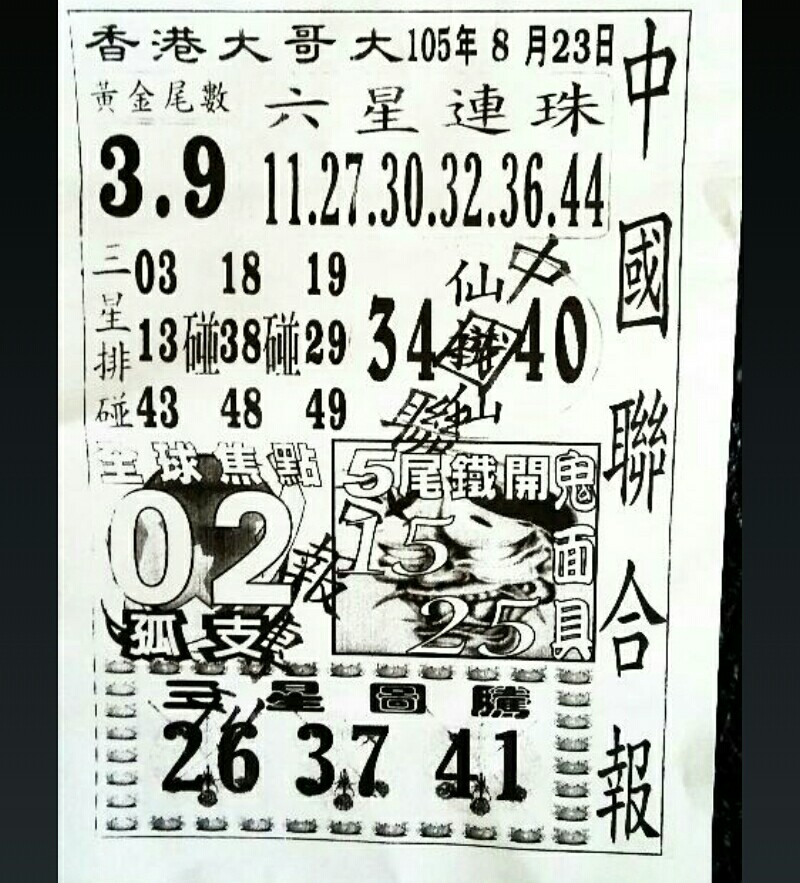 香港大哥大105年8月23日
黃金尾數
六星連珠
3.9
11.27.30.32.36.44
三星排碰
03 18 19
13碰38碰29
43 48 49
仙
34 40
仙
中國聯報
全球焦點
02
孤支
5尾鐵開
15
25
鬼面具
三星圖騰
26 37 41
中國聯合報